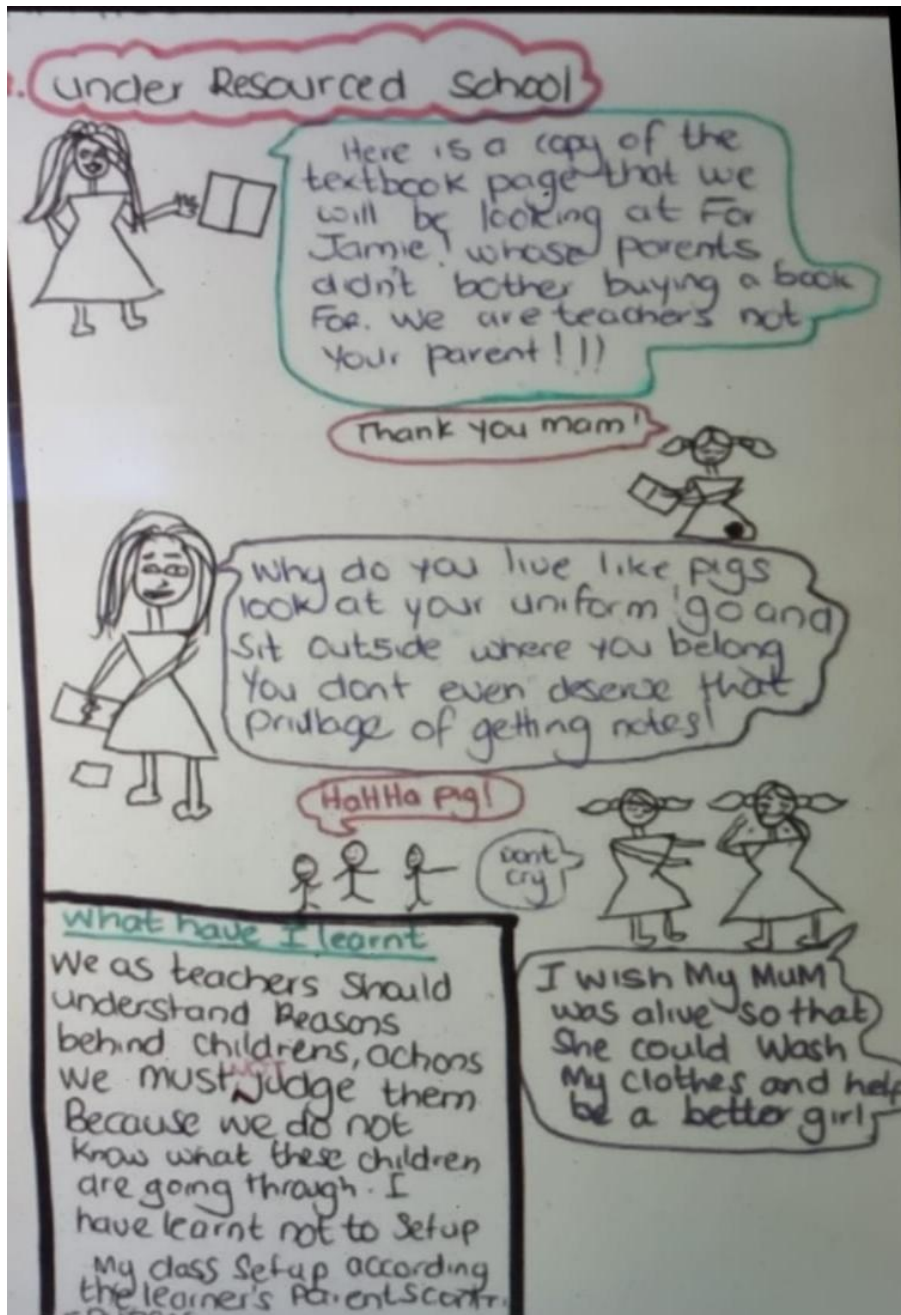 under Resourced School
Here is a copy of the
textbook page that we
will be looking at For
Jamie! whose parents
didn't bother buying a book
For. We are teachers not
your parent!!!
Thank you mam!
Why do you live like pigs
look at your uniform go and
Sit outside where you belong
You dont even deserve that
privlage of getting notes!
HaHHa pig!
Dont
cry
I wish My MUM
was alive so that
She could wash
My clothes and help
be a better girl
What have I learnt
We as teachers Should
understand Reasons
behind childrens, actions
We must NOT judge them
Because we do not
know what these children
are going through. I
have learnt not to Setup
My class Setup according
the learner's Parents